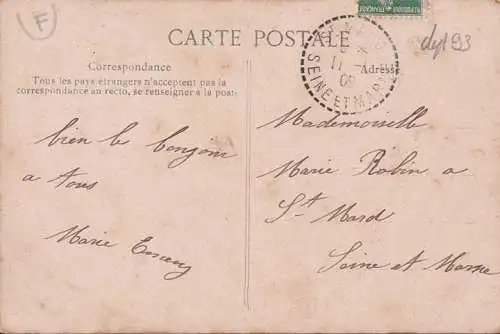 F
RÉPUBLIQUE FRANÇAISE
CARTE POSTALE
dep 93
Correspondance
Tous les pays étrangers n'acceptent pas la
correspondance au recto, se renseigner à la poste
Adresse
11
09
SEINE ET MARNE
bien le bonjour
a tous
Marie
Mademoiselle
Marie Robin a
St Mard
Seine et Marne